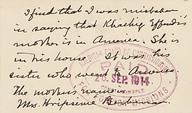 I find that I was mistaken
in saying that Khachig Effendi's
mother is in America. She is
in his house. It was his
sister who went to America.
The mother's name is
Mrs. Hripsime
SEP 1914